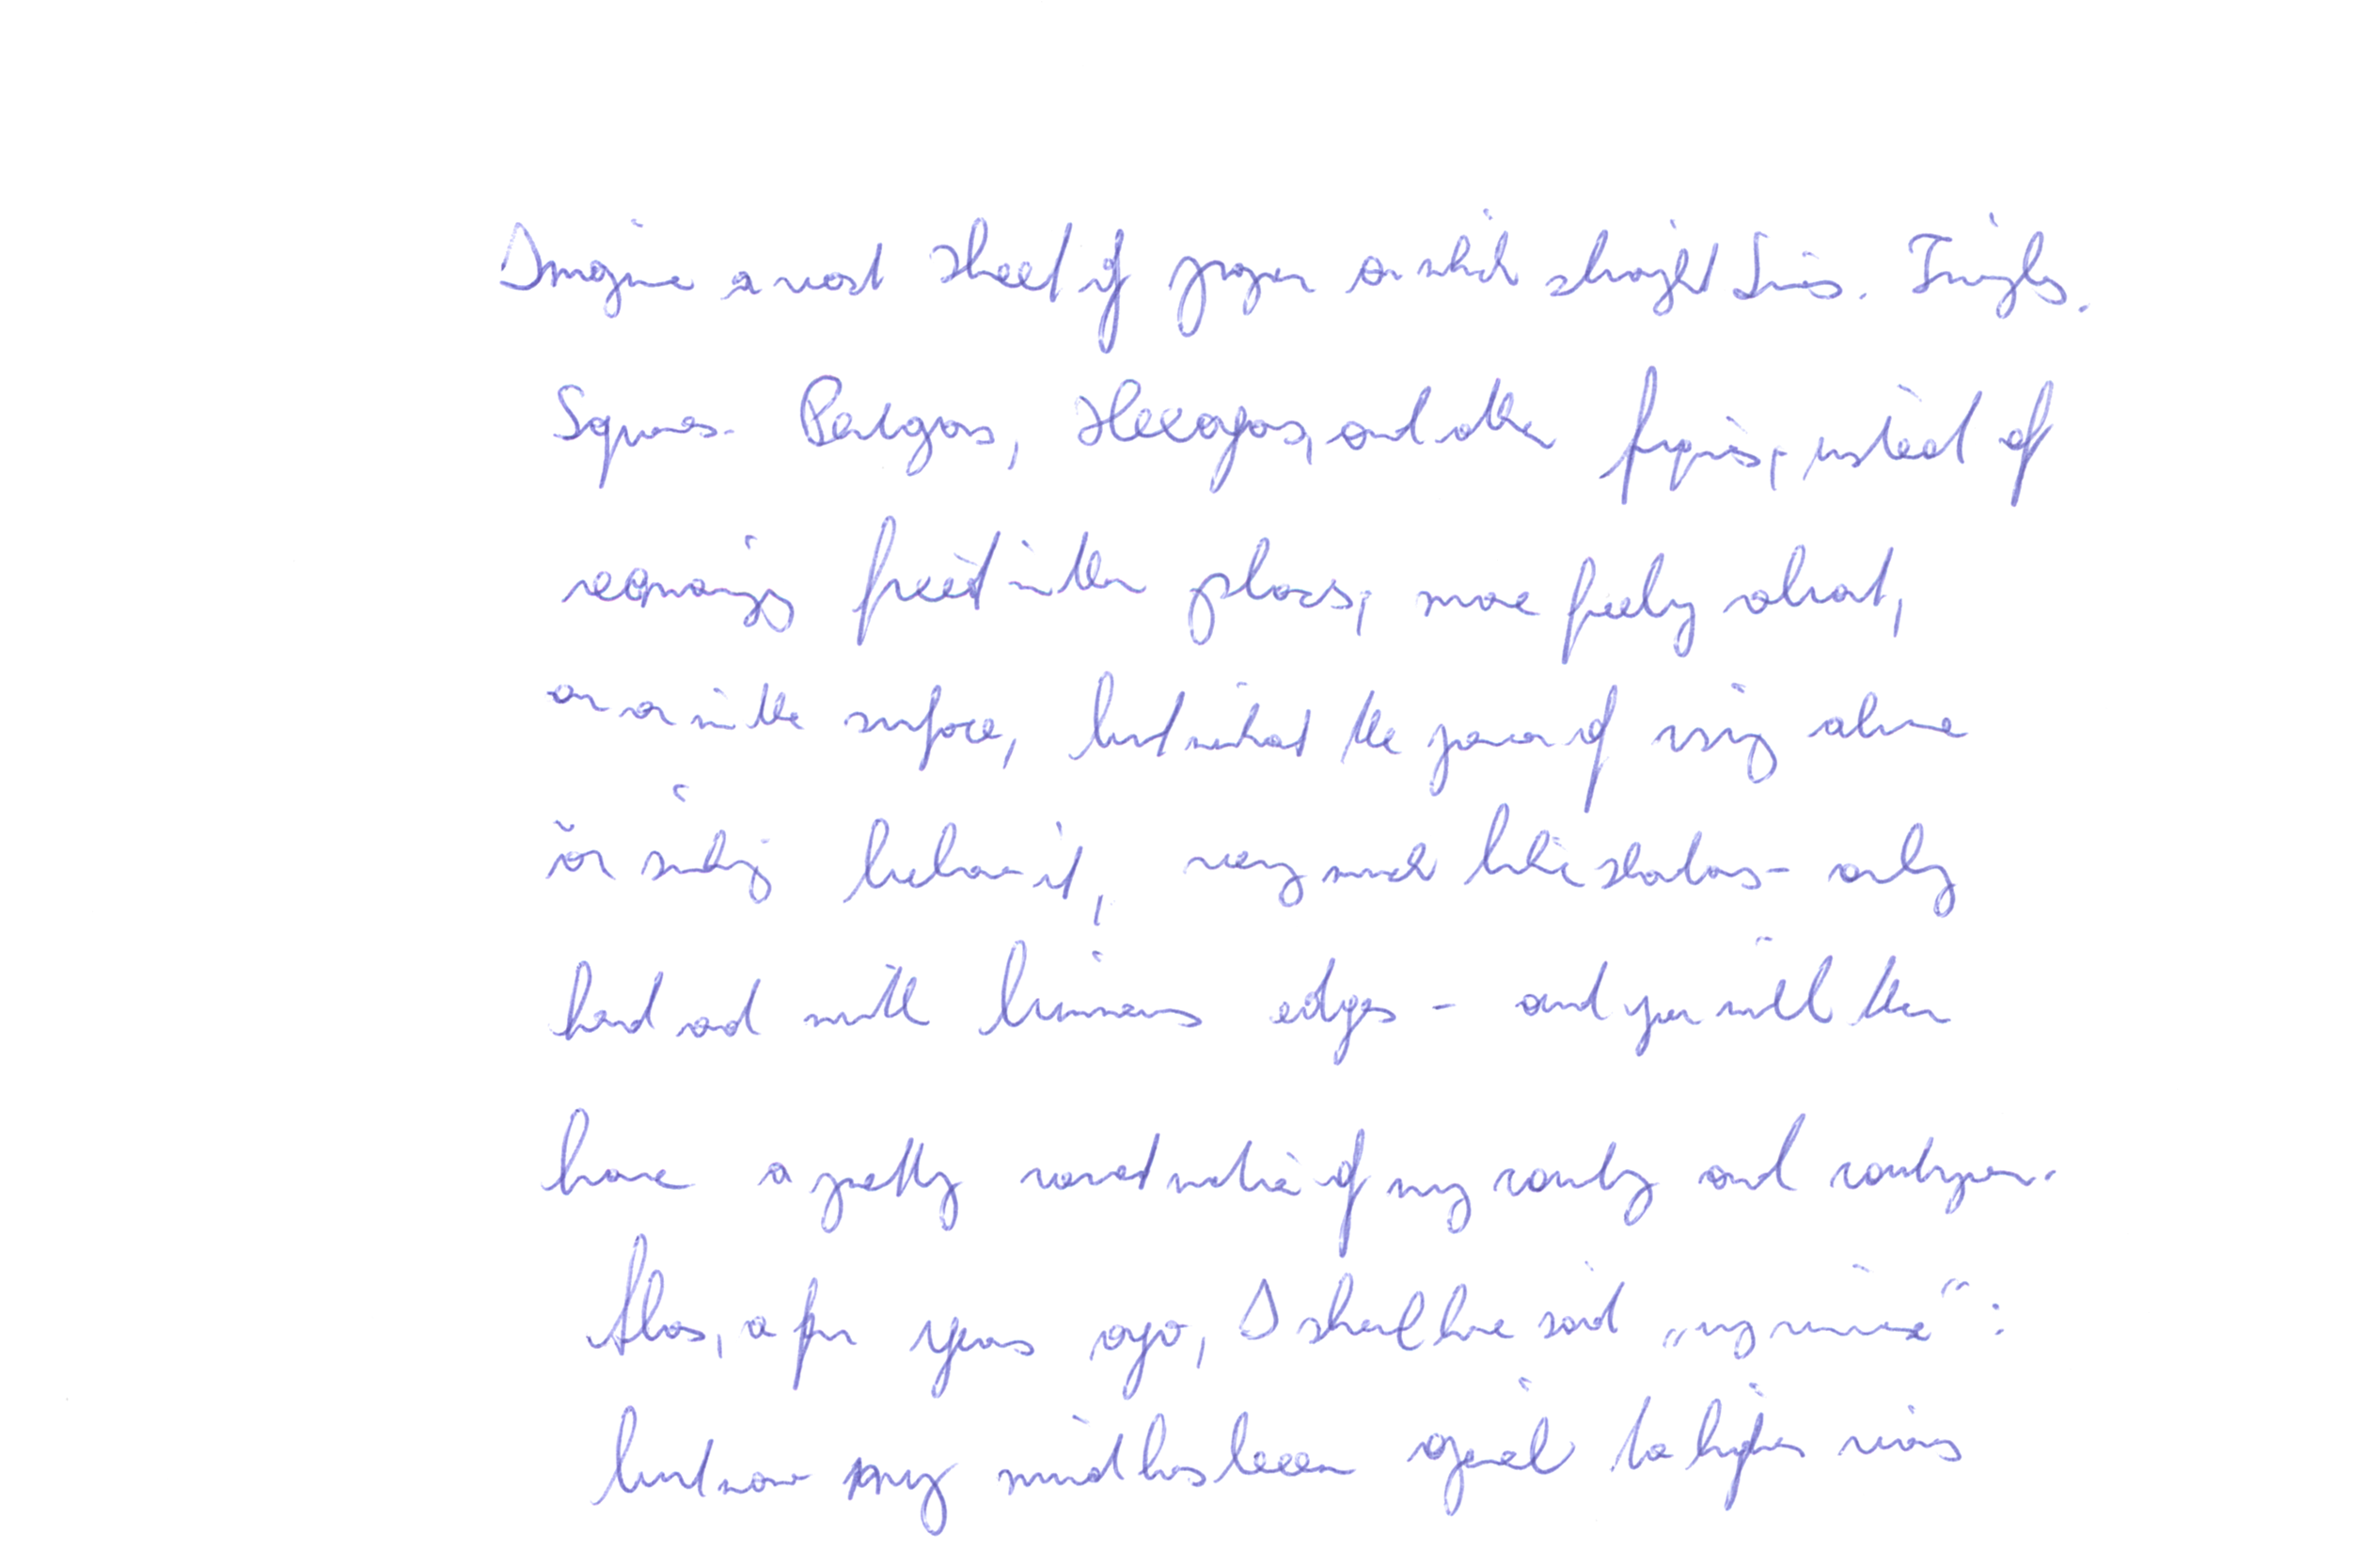 Imagine a vast sheet of paper on which straight Lines. Triangles.
Squares. Pentagons, Hexagons, and other figures, instead of
remaining fixed in their places, move freely about,
on or in the surface, but without the power of rising above
or sinking below it, very much like shadows - only
hard and with luminous edges - and you will then
have a pretty correct notion of my country and countrymen.
Alas, a few years ago, I should have said „my universe“:
but now my mind has been opened to higher views